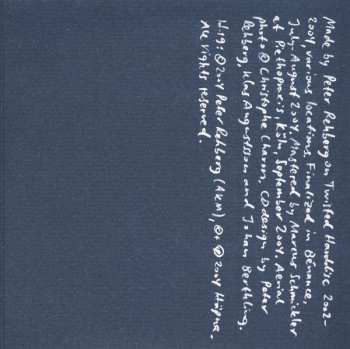 Made by Peter Rehberg on Twisted Harddisc 2002-
2004, various locations. Finalized in Bénance,
July-August 2004. Mastered by Marcus Schmickler
at Piethopraxis, Köln, September 2004. Aerial
photo © Christophe Charon, CD design by Peter
Rehberg, Klas Augustsson and Johan Berthling.
N-19: © 2004 Peter Rehberg (AKM), © + ℗ 2004 Häpna.
All rights reserved.